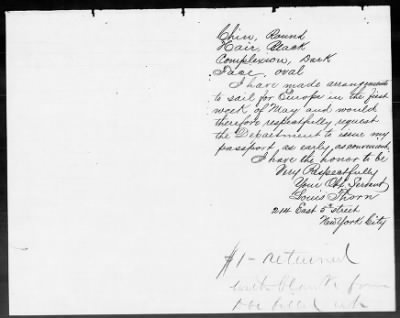 Chin, Round
Hair, Black
Complexion, Dark
Face, oval
I have made arrangements
to sail for Europe in the first
week of May and would
therefore respectfully request
the Department to issue my
passport as early as convenient,
I have the honor to be
Very Respectfully
Your Obt. Servant
Louis Thorn
214 East 5th street
New York City
#1 - returned
with blank form
to be filled